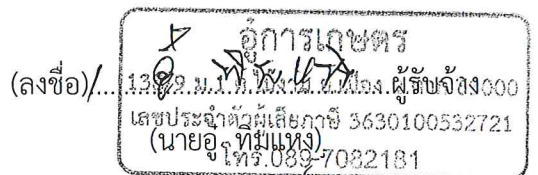 อู่การเกษตร
(ลงชื่อ) ผู้รับจ้าง
เลขประจำตัวผู้เสียภาษี 3630100532721
(นายอู๋ ทิมแหง)
โทร.089-7082181